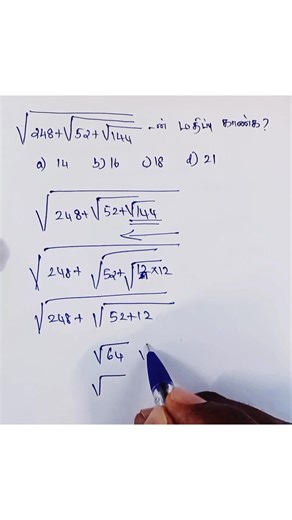 √248+√52+√144 -ன் மதிப்பு காண்க?
a) 14 b) 16 c) 18 d) 21
√248+√52+√144
√248+√52+√12×12
√248+√52+12
√64 √
√